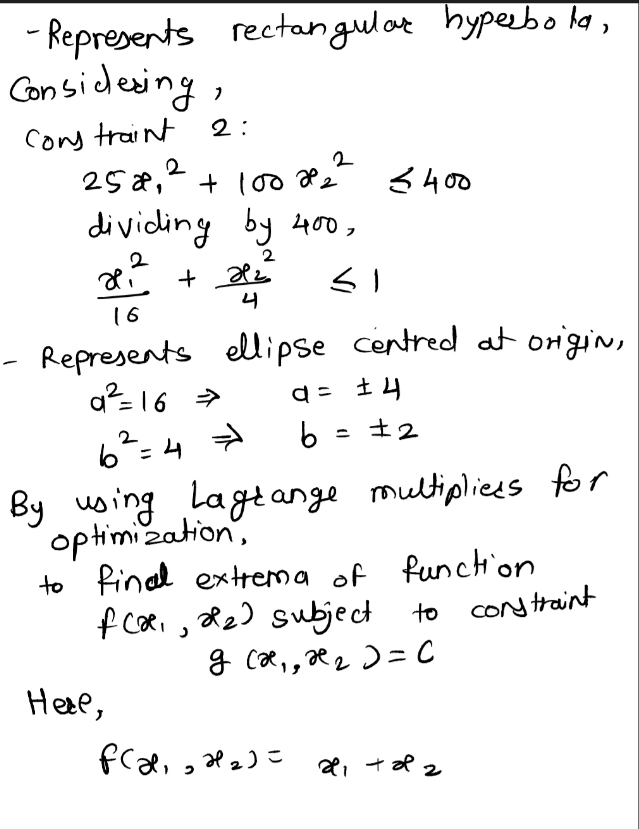 - Represents rectangular hyperbola,
Considering,
constraint 2:
25x₁² + 100x₂² ≤ 400
dividing by 400,
x₁²/16 + x₂²/4 ≤ 1
- Represents ellipse centred at origin,
a² = 16 ⇒ a = ±4
b² = 4 ⇒ b = ±2
By using Lagrange multipliers for
optimization,
to find extrema of function
f(x₁, x₂) subject to constraint
g(x₁, x₂) = C
Here,
f(x₁, x₂) = x₁ + x₂